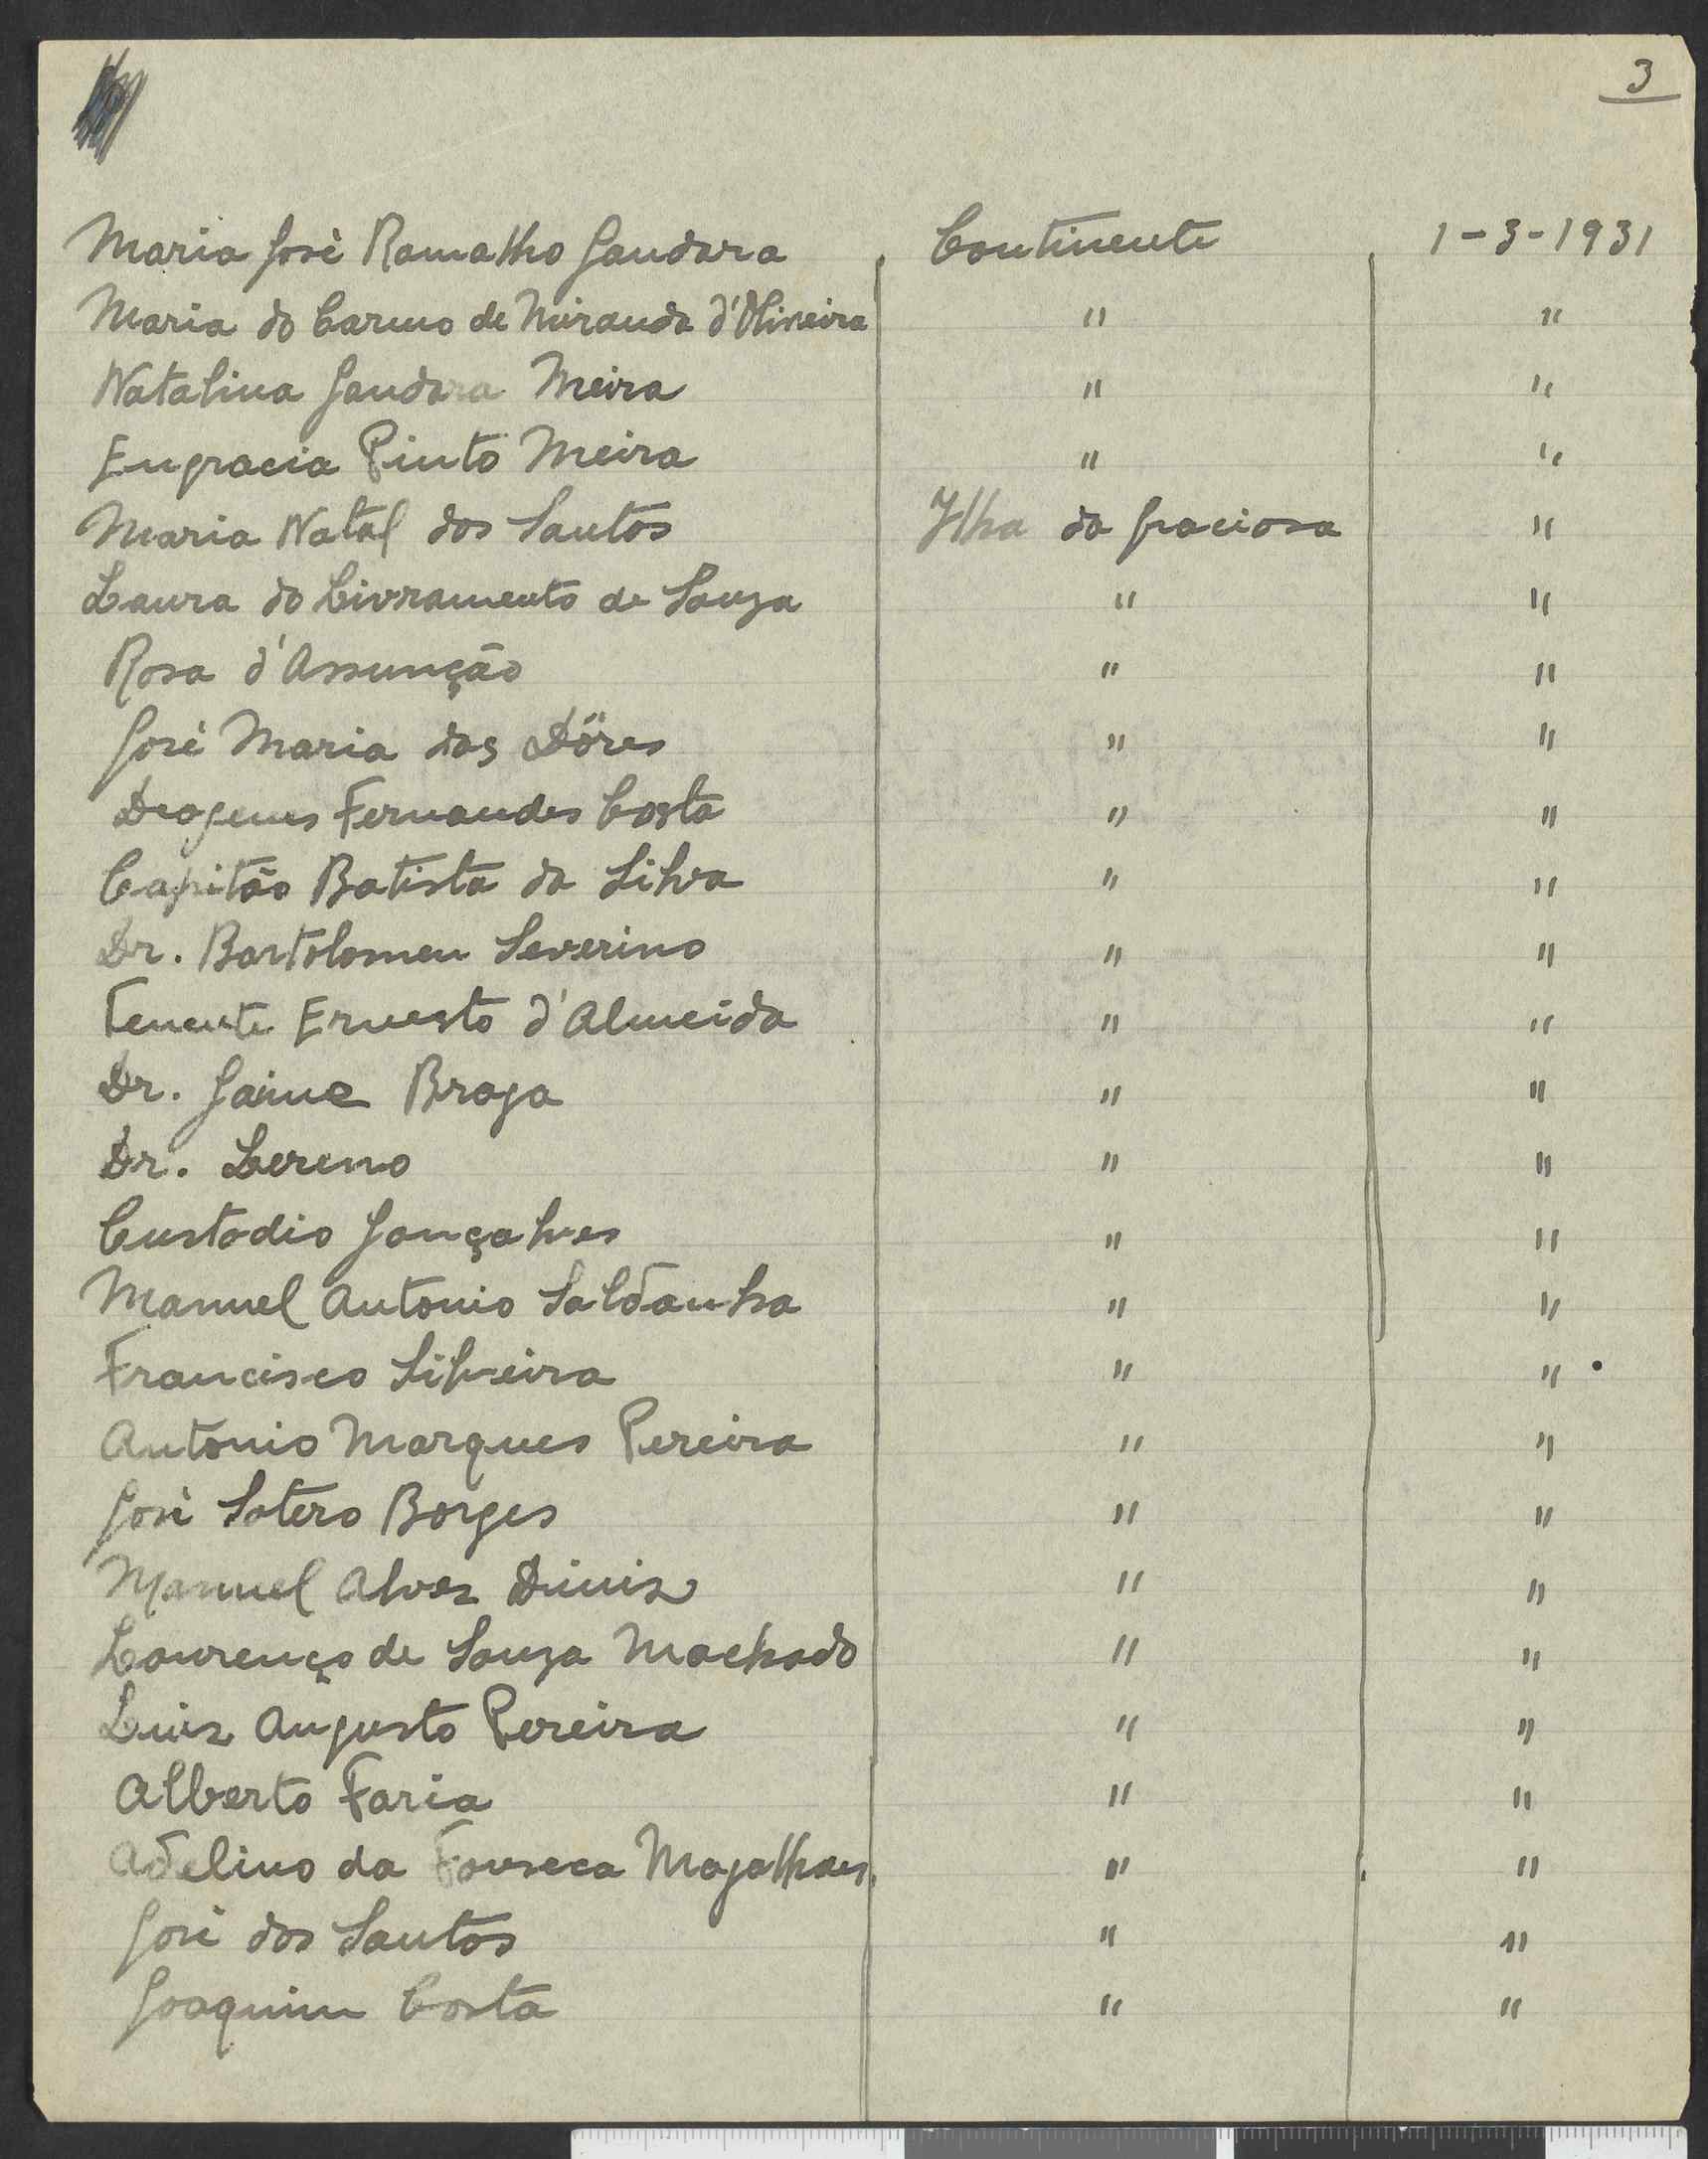 3
Maria José Ramalho Gandara Continente 1-3-1931
Maria do Carmo de Miranda d'Oliveira " "
Natalina Gandara Meira " "
Engracia Pinto Meira " "
Maria Natal dos Santos Ilha da Graciosa "
Laura do Livramento de Souza " "
Rosa d'Assunção " "
José Maria das Dôres " "
Diogenes Fernandes Costa " "
Capitão Batista da Silva " "
Dr. Bartolomeu Severino " "
Tenente Ernesto d'Almeida " "
Dr. Jaime Braga " "
Dr. Lereno " "
Custodio Gonçalves " "
Manuel Antonio Saldanha " "
Francisco Silveira " "
Antonio Marques Pereira " "
José Sotero Borges " "
Manuel Alves Diniz " "
Lourenço de Souza Machado " "
Luiz Augusto Pereira " "
Alberto Faria " "
Adelino da Fonseca Magalhaes " "
José dos Santos " "
Joaquim Costa " "